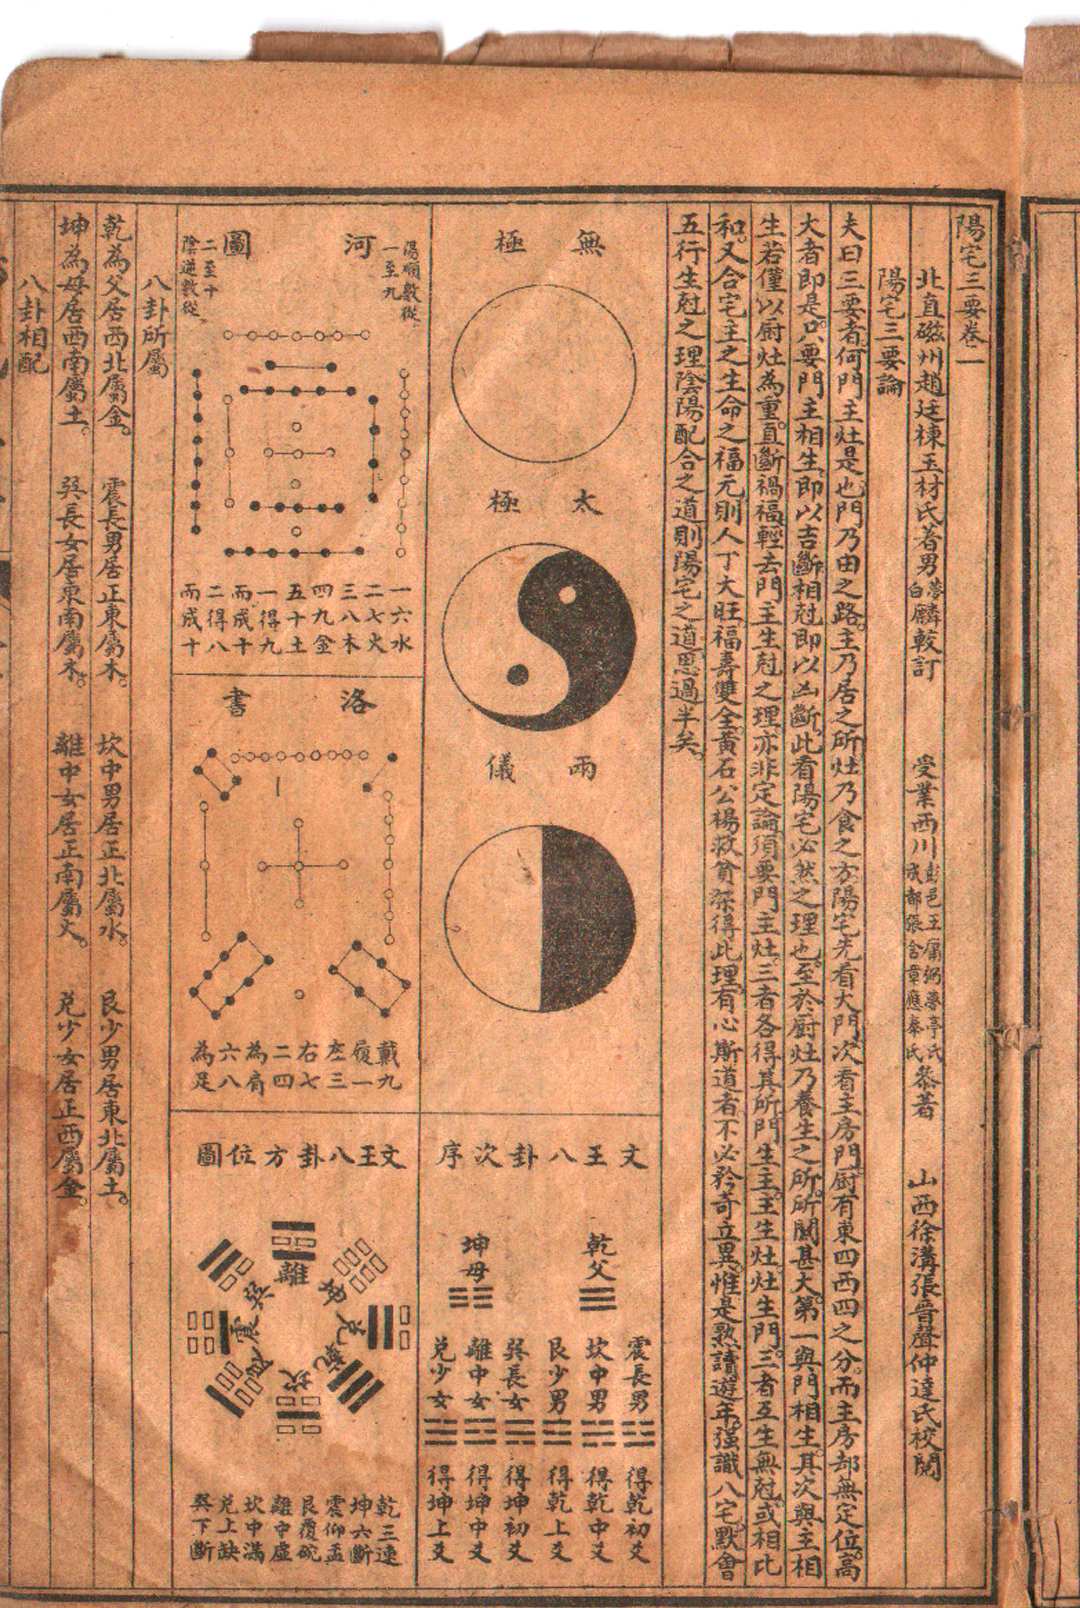 陽宅三要卷一
北直磁州趙廷棟玉材氏著男夢白麟較訂 受業西川彭邑王賡弼夢亭氏成都張含章應奉氏叅著 山西徐溝張晉聲仲達氏校閱
陽宅三要論
夫曰三要者何門主灶是也門乃由之路主乃居之所灶乃食之方陽宅先看大門次看主房門厨有東四西四之分而主房却無定位高
大者即是只要門主相生即以吉斷相尅即以凶斷此看陽宅必然之理也至於厨灶乃養生之所所關甚大第一與門相生其次與主相
生若僅以厨灶為重直斷禍福輕去門主生尅之理亦非定論須要門主灶三者各得其所門生主主生灶灶生門三者互生無尅或相比
和又合宅主之生命之福元則人丁大旺福壽雙全黃石公楊救貧深得此理有心斯道者不必矜奇立異惟是熟讀遊年强識八宅默會
五行生尅之理陰陽配合之道則陽宅之道思過半矣
無極
太極
兩儀
文王八卦次序
乾父
坤母
震長男 得乾初爻
坎中男 得乾中爻
艮少男 得乾上爻
巽長女 得坤初爻
離中女 得坤中爻
兌少女 得坤上爻
河圖
陽順數從一至九
陰逆數從二至十
一六水
二七火
三八木
四九金
五十土
一得九
而成十
二得八
而成十
洛書
戴九
履一
左三
右七
二四
為肩
六八
為足
文王八卦方位圖
離
坤
兌
乾
坎
艮
震
巽
乾三連
坤六斷
震仰盂
艮覆碗
離中虛
坎中滿
兌上缺
巽下斷
八卦所屬
乾為父居西北屬金。 震長男居正東屬木。 坎中男居正北屬水。 艮少男居東北屬土。
坤為母居西南屬土。 巽長女居東南屬木。 離中女居正南屬火。 兌少女居正西屬金。
八卦相配